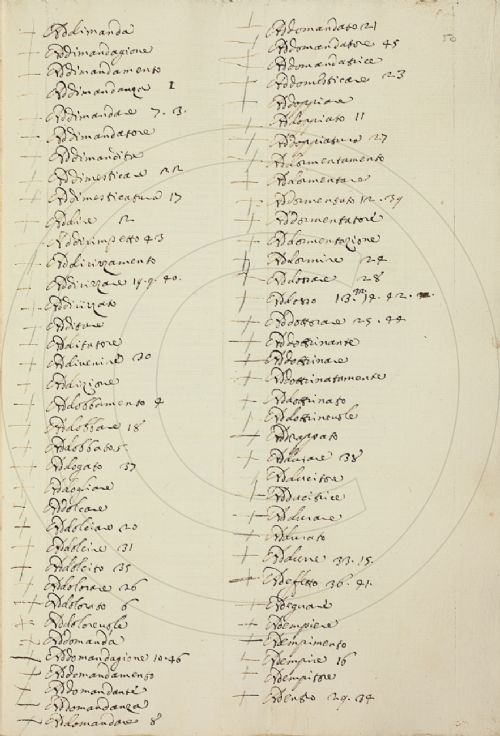 Addimanda
Addimandagione
Addimandamento
Addimandanza 1
Addimandare 7. 3.
Addimandatore
Addimandita
Addimesticare 22
Addimesticatura 17
Addire 2
Addirimpetto 43
Addirizzamento
Addirizzare 19. 9. 40.
Addirizzato
Additare
Additatore
Addivenire 20
Addizione
Addobbamento 4
Addobbare 18
Addobbato
Addogato 37
Addogliare
Addolcare
Addolciare 20
Addolcire 31
Addolcito 25
Addolorare 26
Addolorato 6
Addolorevole
Addomanda
Addomandagione 10. 46
Addomandamento
Addomandante
Addomandanza
Addomandare 8
Addomandato 21
Addomandatore 45
Addomandatrice
Addomesticare 23
Addoppiare
Addoppiato 11
Addoppiatura 27
Addormentamento
Addormentare
Addormentato 12. 39
Addormentatore
Addormentazione
Addormire 24
Addossare 28
Addosso 13. 14. 42.
Addottorare 25. 44
Addottrinante
Addottrinare
Addottrinatamente
Addottrinato
Addottrinevole
Addrappato
Addurare 38
Adducitore
Adducitrice
Addurare
Addurato
Addurre 33. 15.
Adeffetto 36. 41.
Adeguare
Adempiere
Adempimento
Adempire 16
Adempitore
Adento 29. 34